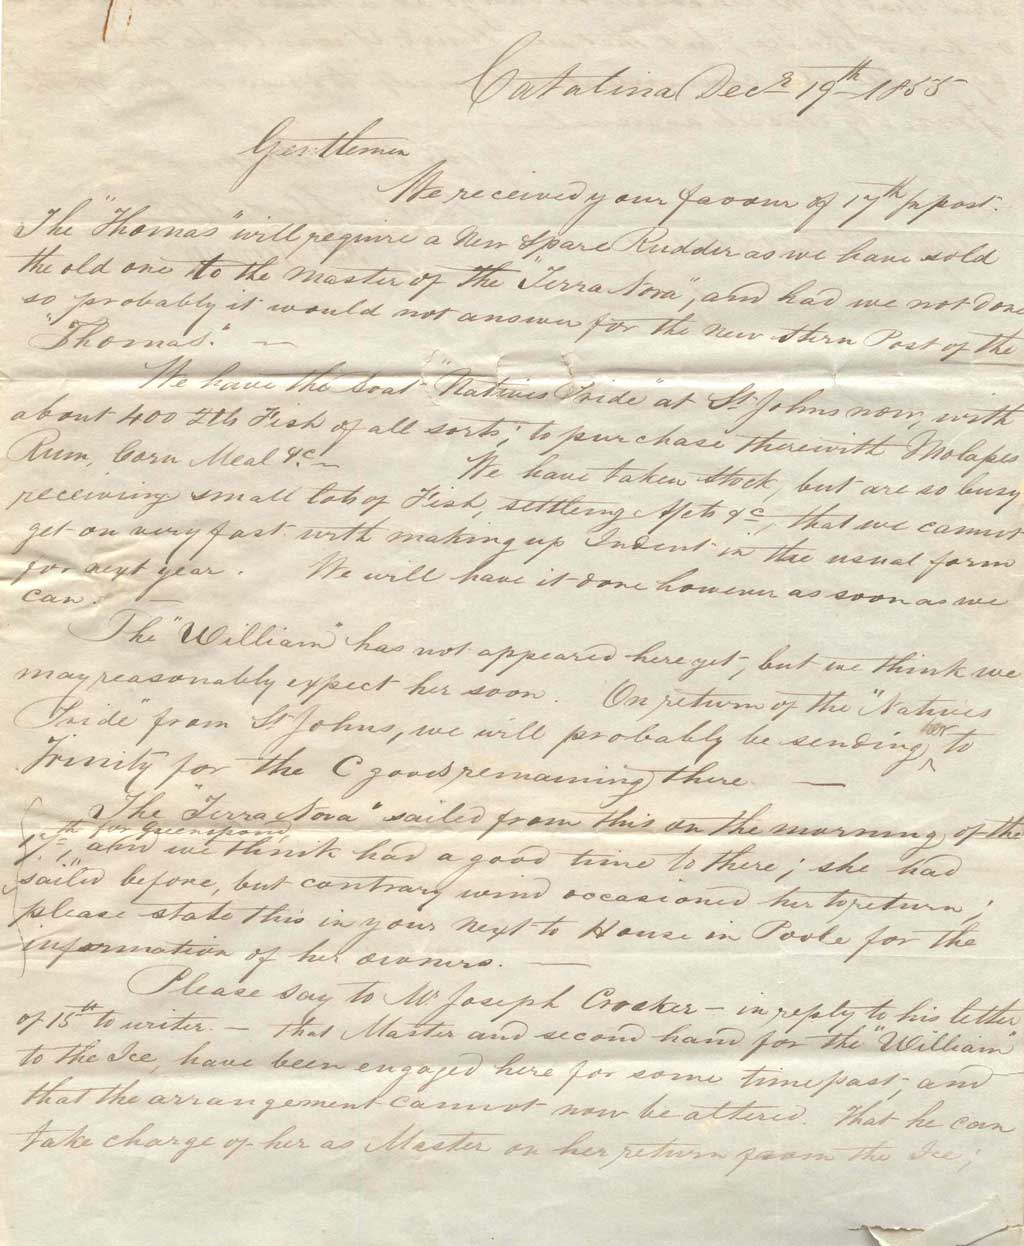 Catalina Decr 19th 1855
Gentlemen
We received your favour of 17th pr post.
The "Thomas" will require a New Spare Rudder as we have sold
the old one to the Master of the "Terra Nova", and had we not done
so probably it would not answer for the new Stern Post of the
"Thomas". —
We have the boat "Natives Pride" at St Johns now, with
about 400 Qtls Fish of all sorts; to purchase therewith Molases
Rum, Corn Meal &c. — We have taken Stock, but are so busy
receiving small lots of Fish, settling Accts &c, that we cannot
get on very fast with making up Indent in the usual form
for next year. We will have it done however as soon as we
can. —
The "William" has not appeared here yet, but we think we
may reasonably expect her soon. On return of the "Natives
Pride" from St Johns, we will probably be sending her to
Trinity for the C goods remaining there. —
The "Terra Nova" sailed from this on the morning of the
17th for Greenspond, and we think had a good time to there; she had
sailed before, but contrary wind occasioned her to return;
please state this in your next to House in Poole for the
information of her owners. —
Please say to Mr Joseph Crocker — in reply to his letter
of 15th to writer. — that Master and second hand for the "William"
to the Ice, have been engaged here for some time past, and
that the arrangement cannot now be altered. That he can
take charge of her as Master on her return from the Ice;